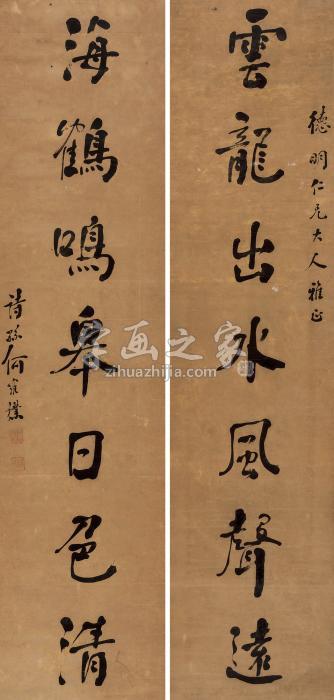 德明仁兄大人雅正
雲龍出水風聲遠
海鶴鳴皋日色清
詩孫何維樸
字画之家
zihuazhijia.com